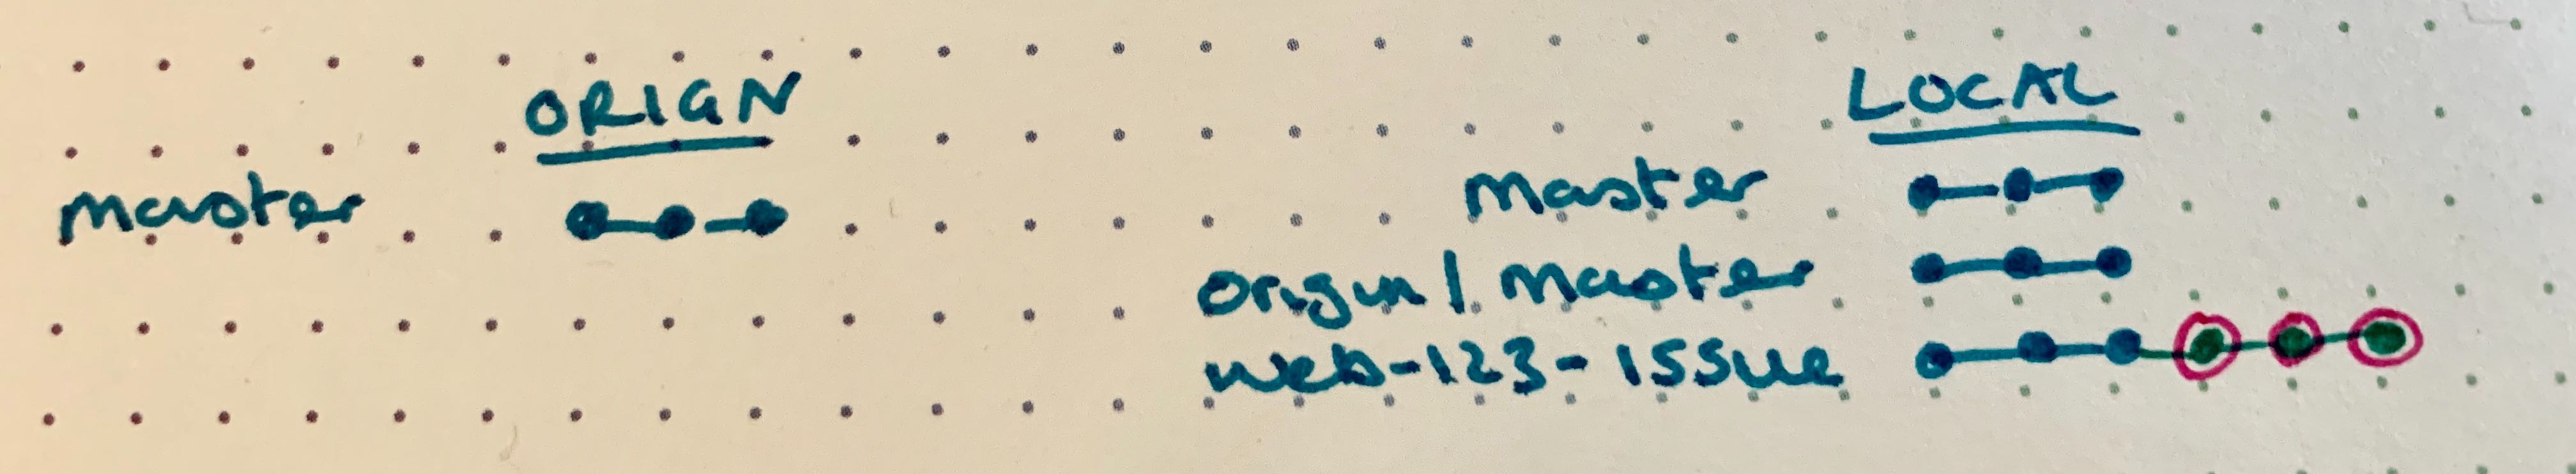 ORIGN
master
LOCAL
master
origin/master
web-123-issue